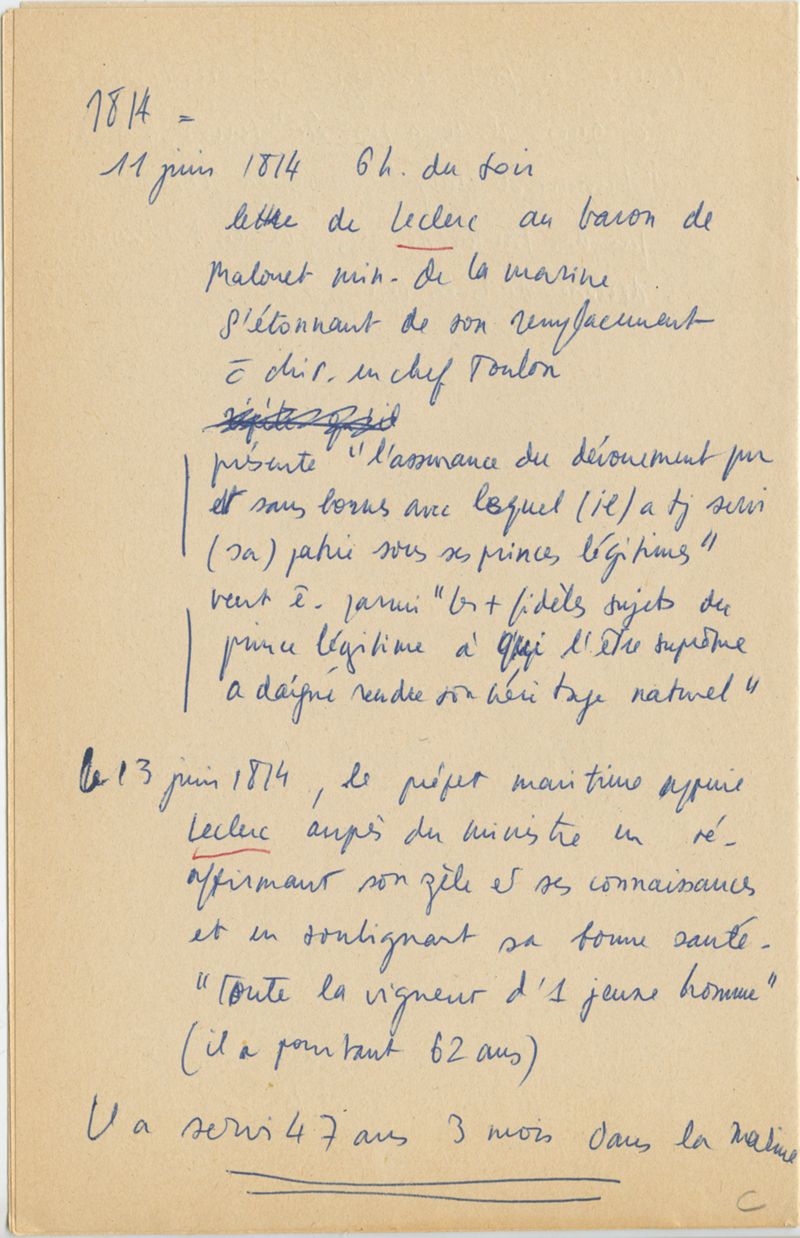 1814 =
11 juin 1814 6 h. du soir
lettre de Leclerc au baron de
Malouet min. de la marine
s'étonnant de son remplacement
c̄ chir. en chef Toulon
présente "l'assurance du dévouement pur
et sans bornes avec lequel (il) a tj servi
(sa) patrie sous ses princes légitimes"
veut ê. parmi "les + fidèles sujets du
prince légitime à qui l'être suprême
a daigné rendre son héritage naturel"
le 13 juin 1814, le préfet maritime appuie
Leclerc auprès du ministre en ré-
affirmant son zèle et ses connaissances
et en soulignant sa bonne santé.
"Toute la vigueur d'1 jeune homme"
(il a pourtant 62 ans)
Il a servi 47 ans 3 mois dans la marine
C